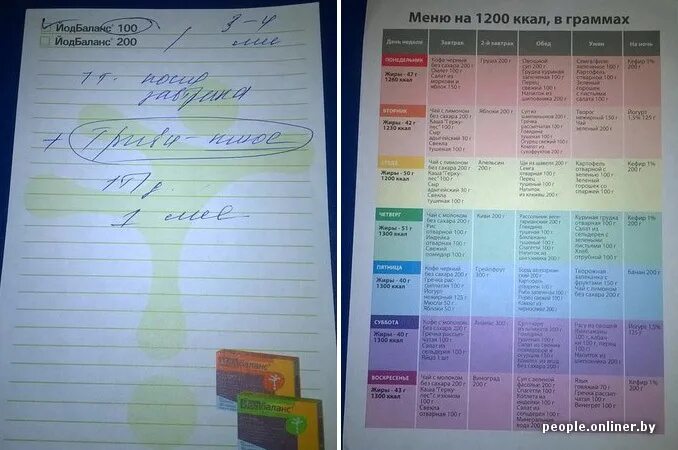 ЙодБаланс 100
ЙодБаланс 200
/ 3-4
мес
1т. после
завтрака
+
1 мес
ЙодБаланс
ЙодБаланс
Меню на 1200 ккал, в граммах
День недели Завтрак 2-й завтрак Обед Ужин На ночь
ПОНЕДЕЛЬНИК
Жиры - 47 г
1260 ккал
Кофе черный
без сахара 200 г
Омлет 100 г
Салат из
моркови и
яблок 150 г
Груша 200 г
Овощной
суп 200 г
Грудка куриная
запеченная 100 г
Перец
свежий 100 г
Напиток из
шиповника 200 г
запеченное 100 г
Картофель
отварной 100 г
Зеленый
горошек
с листьями
салата 100 г
Кефир 1%
200 г
ВТОРНИК
Жиры - 42 г
1230 ккал
Чай с лимоном
без сахара 200 г
Каша "Герку-
лес" 100 г
Сыр
адыгейский 30 г
Свекла
тушеная 100 г
Яблоки 200 г
Суп из
шампиньонов 200 г
Гречка
рассыпчатая 100 г
Говядина
тушеная 100 г
Огурец свежий 100 г
Компот из
сухофруктов 200 г
Творог
нежирный 150 г
Чай
зеленый 200 г
Йогурт
1,5% 125 г
СРЕДА
Жиры - 50 г
1200 ккал
Чай с лимоном
без сахара 200 г
Каша "Герку-
лес" 100 г
Сыр
адыгейский 30 г
Свекла
тушеная 100 г
Апельсин
200 г
Щи из щавеля 200 г
Семга
отварная 100 г
Перец
тушеный 100 г
Напиток
из клюквы 200 г
Картофель
отварной с
зеленью 200 г
Зеленый
горошек со
спаржей 100 г
Кефир 1%
200 г
ЧЕТВЕРГ
Жиры - 51 г
1300 ккал
Чай с молоком
без сахара 200 г
Рис
отварной 100 г
Индейка
отварная 100 г
Свежий
помидор 100 г
Киви 200 г
Рассольник веге-
тарианский 200 г
Говядина
тушеная 100 г
Баклажаны
тушеные 100 г
Спагетти 100 г
Куриная грудка
отварная 100 г
Салат из
сельдерея с
зелеными
листьями 100 г
Хлеб
отрубной 100 г
Кефир 1%
200 г
ПЯТНИЦА
Жиры - 40 г
1300 ккал
Кофе черный
без сахара 200 г
Гречка рас-
сыпчатая 100 г
Йогурт
нежирный 125 г
Мюсли 50 г
Яблоки 50 г
Грейпфрут
300 г
Борщ вегетариан-
ский 200 г
Картофель
отварной 100 г
Творожная
запеканка с
фруктами 150 г
Чай с лимоном
200 г
Банан 200 г
СУББОТА
Жиры - 40 г
1300 ккал
Кофе с молоком
без сахара 200 г
Гречка рассып-
чатая 100 г
Салат из
сельдерея 100 г
Яйцо 1 шт
Ананас 300 г
Йогурт 1,5%
125 г
ВОСКРЕСЕНЬЕ
Жиры - 43 г
1300 ккал
Чай с молоком
без сахара 200 г
Каша "Герку-
лес" с изюмом
100 г
Свекла
отварная 100 г
Виноград
200 г
Суп с зеленой
фасолью 200 г
Спагетти 100 г
Салат из
сельдерея 100 г
Минеральная
вода 200 г
Язык
говяжий 70 г
Гречка
рассыпчатая 100 г
Винегрет 100 г
Кефир 1%
200 г
people.onliner.by